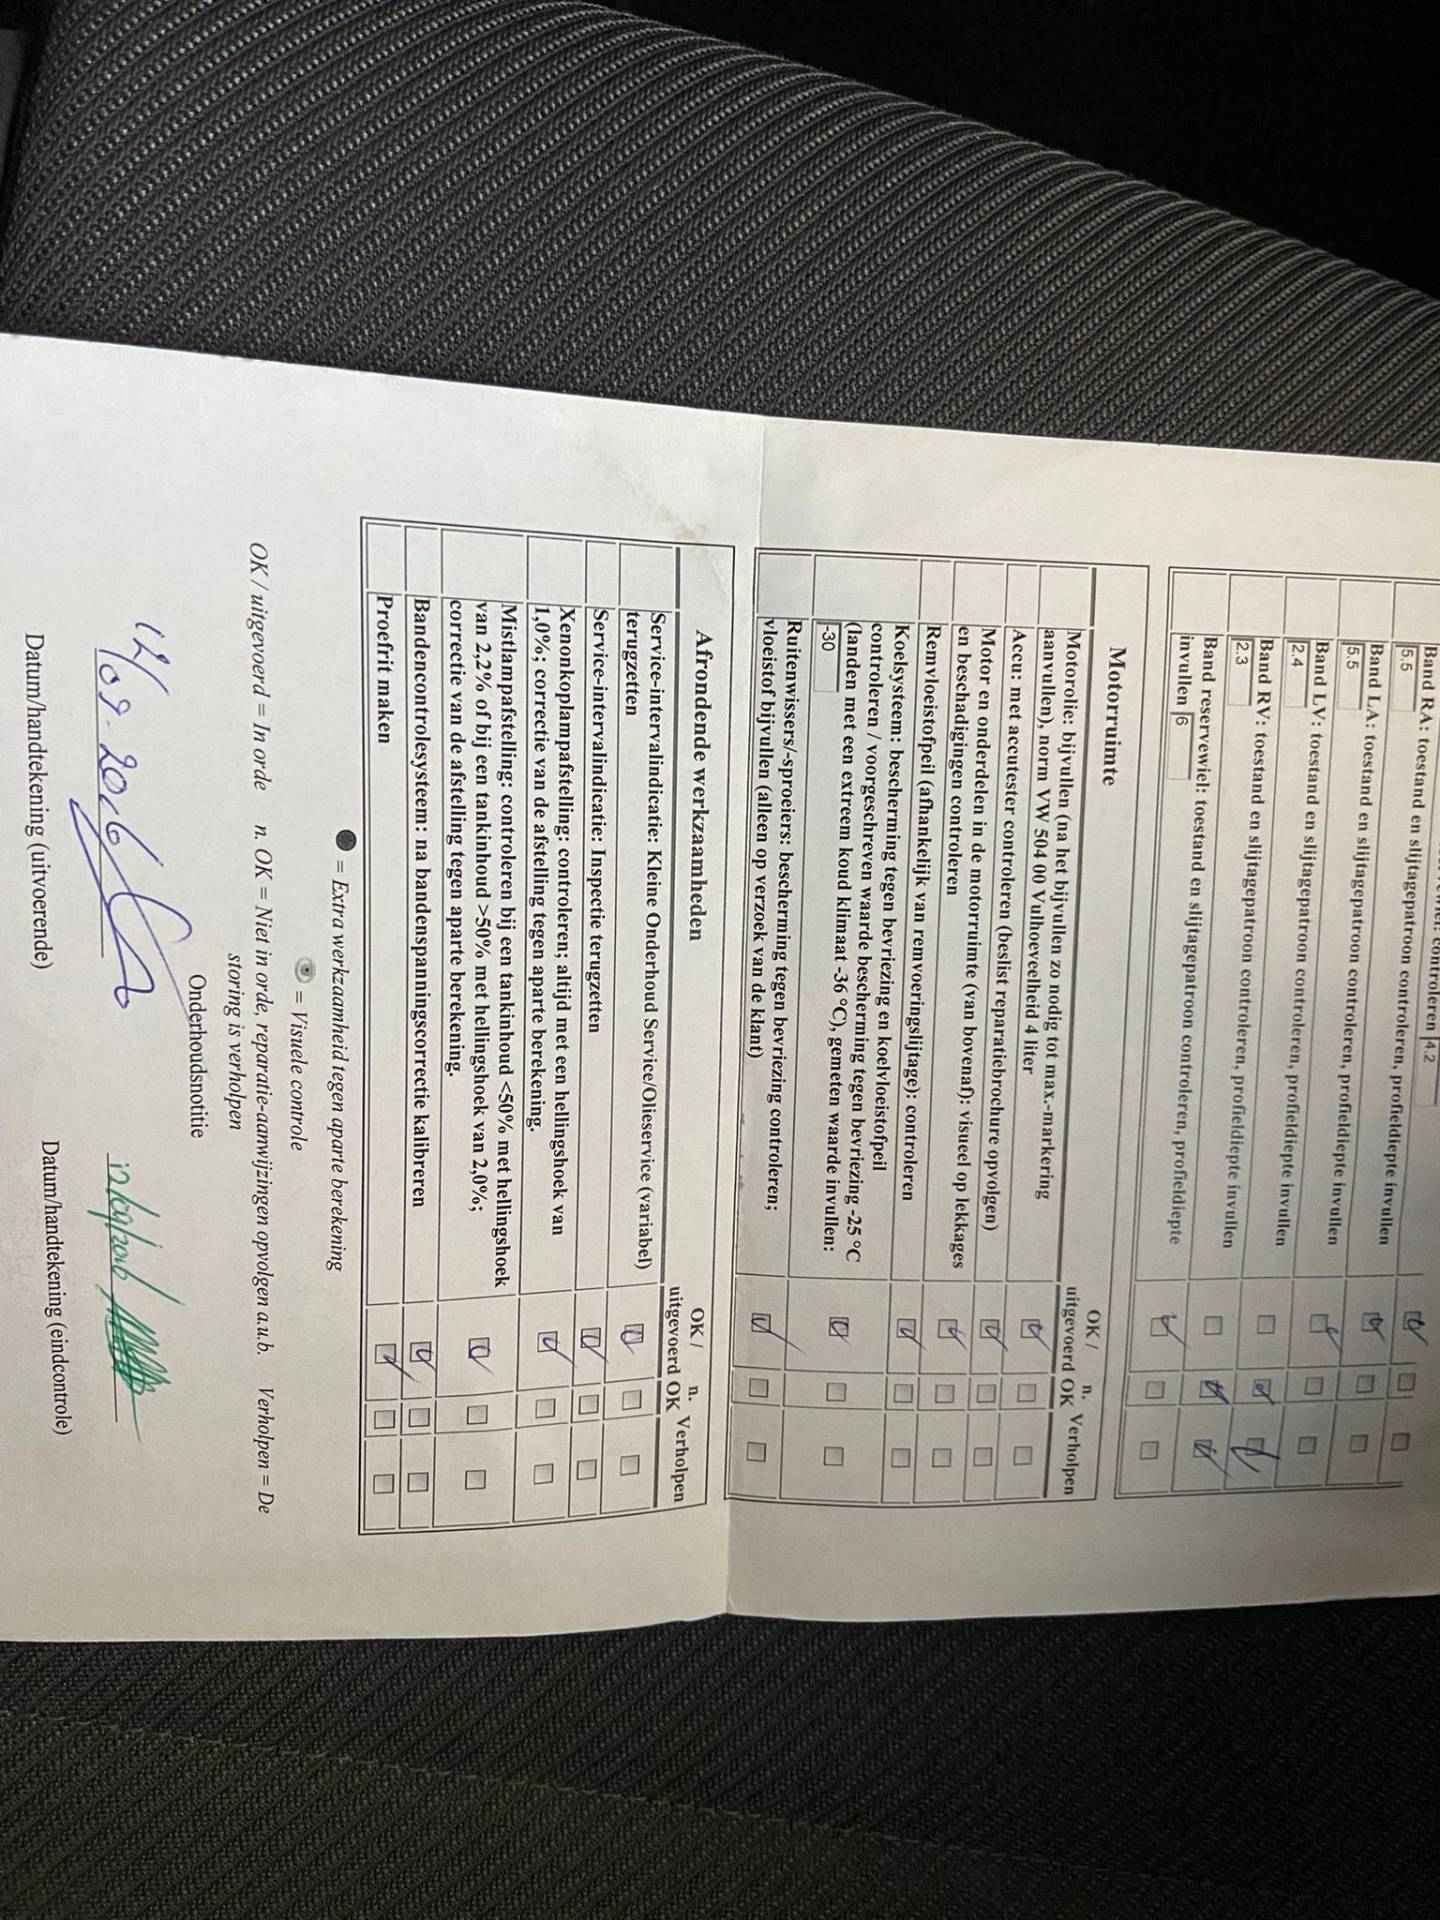 controleren 4.2
Band RA: toestand en slijtagepatroon controleren, profieldiepte invullen
5.5
Band LA: toestand en slijtagepatroon controleren, profieldiepte invullen
5.5
Band LV: toestand en slijtagepatroon controleren, profieldiepte invullen
2.4
Band RV: toestand en slijtagepatroon controleren, profieldiepte invullen
2.3
Band reservewiel: toestand en slijtagepatroon controleren, profieldiepte
invullen 6
Motorruimte
OK / uitgevoerd n. OK Verholpen
Motorolie: bijvullen (na het bijvullen zo nodig tot max.-markering
aanvullen), norm VW 504 00 Vulhoeveelheid 4 liter
Accu: met accutester controleren (beslist reparatiebrochure opvolgen)
Motor en onderdelen in de motorruimte (van bovenaf): visueel op lekkages
en beschadigingen controleren
Remvloeistofpeil (afhankelijk van remvoeringslijtage): controleren
Koelsysteem: bescherming tegen bevriezing en koelvloeistofpeil
controleren / voorgeschreven waarde bescherming tegen bevriezing -25 °C
(landen met een extreem koud klimaat -36 °C), gemeten waarde invullen:
-30
Ruitenwissers/-sproeiers: bescherming tegen bevriezing controleren;
vloeistof bijvullen (alleen op verzoek van de klant)
Afrondende werkzaamheden
OK / uitgevoerd n. OK Verholpen
Service-intervalindicatie: Kleine Onderhoud Service/Olieservice (variabel)
terugzetten
Service-intervalindicatie: Inspectie terugzetten
Xenonkoplampafstelling: controleren; altijd met een hellingshoek van
1,0%; correctie van de afstelling tegen aparte berekening.
Mistlampafstelling: controleren bij een tankinhoud <50% met hellingshoek
van 2,2% of bij een tankinhoud >50% met hellingshoek van 2,0%;
correctie van de afstelling tegen aparte berekening.
Bandencontrolesysteem: na bandenspanningscorrectie kalibreren
Proefrit maken
= Extra werkzaamheid tegen aparte berekening
= Visuele controle
OK / uitgevoerd = In orde n. OK = Niet in orde, reparatie-aanwijzingen opvolgen a.u.b. Verholpen = De
storing is verholpen
Onderhoudsnotitie
12/09-2016
Datum/handtekening (uitvoerende) Datum/handtekening (eindcontrole)